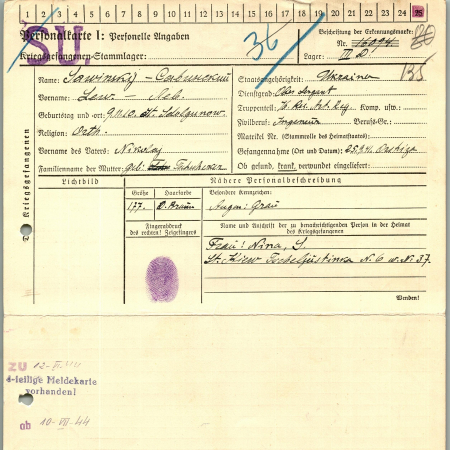 1 2 3 4 5 6 7 8 9 10 11 12 13 14 15 16 17 18 19 20 21 22 23 24 25
Personalkarte I: Personelle Angaben
Kriegsgefangenen-Stammlager:
S.U.
36
Beschriftung der Erkennungsmarke
Nr. 16094
Lager:
135
Des Kriegsgefangenen
Name: Sawinsky - Савинский
Vorname: Lew - Лев.
Geburtstag und -ort: 9.11.10. st.
Religion: Orth.
Vorname des Vaters: Nikolaj
Familienname der Mutter: geb.
Staatsangehörigkeit: Ukraine
Dienstgrad: Ober Sergant
Truppenteil: Art. Reg. Komp. usw.:
Zivilberuf: Ingeneur Berufs-Gr.:
Matrikel Nr. (Stammrolle des Heimatstaates):
Gefangennahme (Ort und Datum): 25.9.41.
Ob gesund, krank, verwundet eingeliefert:
Lichtbild
Nähere Personalbeschreibung
Größe Haarfarbe Besondere Kennzeichen:
177. D. Braun Augen: Grau
Fingerabdruck
des rechten! Zeigefingers
Name und Anschrift der zu benachrichtigenden Person in der Heimat
des Kriegsgefangenen
Frau: Nina, S.
St. Kiew N. 6 w. N. 37.
Wenden!
ZU 12-
4-teilige Meldekarte
vorhanden!
ab 10-VII-44